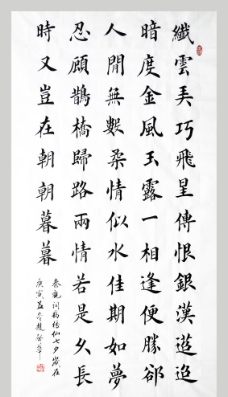 纖雲弄巧飛星傳恨銀漢迢迢
暗度金風玉露一相逢便勝郤
人間無數柔情似水佳期如夢
忍顧鵲橋歸路兩情若是久長
時又豈在朝朝暮暮
秦觀詞鵲橋仙七夕歲在
庚寅孟冬趙